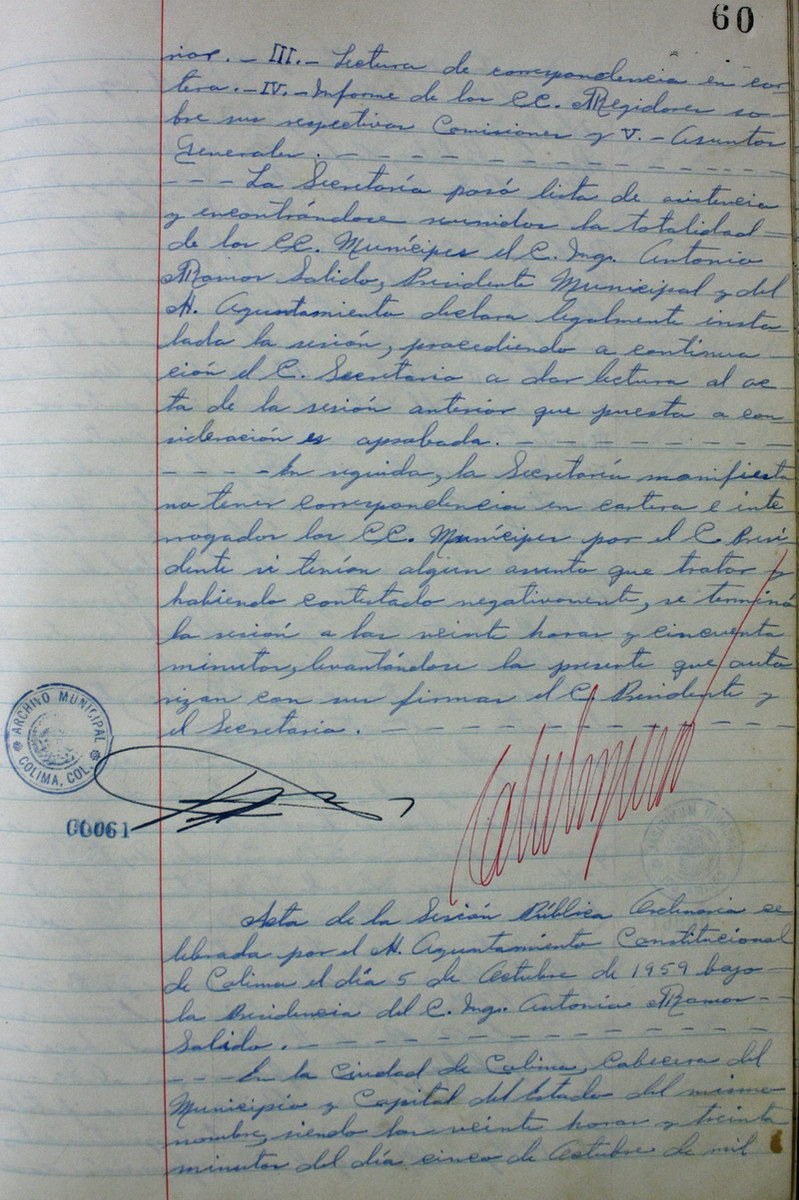 60
rior. - III.- Lectura de correspondencia en car-
tera. -IV.- Informe de los CC. Regidores so-
bre sus respectivas Comisiones y V. - Asuntos
Generales. - - - - - - - - - - - - - -
- - - La Secretaría pasó lista de asistencia
y encontrándose reunidos la totalidad
de los CC. Munícipes el C. Ing. Antonio
Ramos Salido, Presidente Municipal y del
H. Ayuntamiento declara legalmente insta
lada la sesión, procediendo a continua
ción el C. Secretario a dar lectura al ac
ta de la sesión anterior que puesta a con
sideración es aprobada. - - - - - - - -
- - - - En seguida, la Secretaría manifiesta
no tener correspondencia en cartera e inte
rrogados los CC. Munícipes por el C. Presi-
dente si tenían algun asunto que tratar y
habiendo contestado negativamente, se terminó
la sesión a las veinte horas y cincuenta
minutos, levantándose la presente que auto
rizan con sus firmas el C. Presidente y
el Secretario. - - - - - - - - - - - -
ARCHIVO MUNICIPAL
COLIMA, COL.
00061
Acta de la Sesión Pública Ordinaria ce
lebrada por el H. Ayuntamiento Constitucional
de Colima el día 5 de Octubre de 1959 bajo
la Presidencia del C. Ing. Antonio Ramos
Salido. - - - - - - - - - - - - - -
- - - En la Ciudad de Colima, Cabecera del
Municipio y Capital del Estado del mismo
nombre, siendo las veinte horas y treinta
minutos del día cinco de Octubre de mil